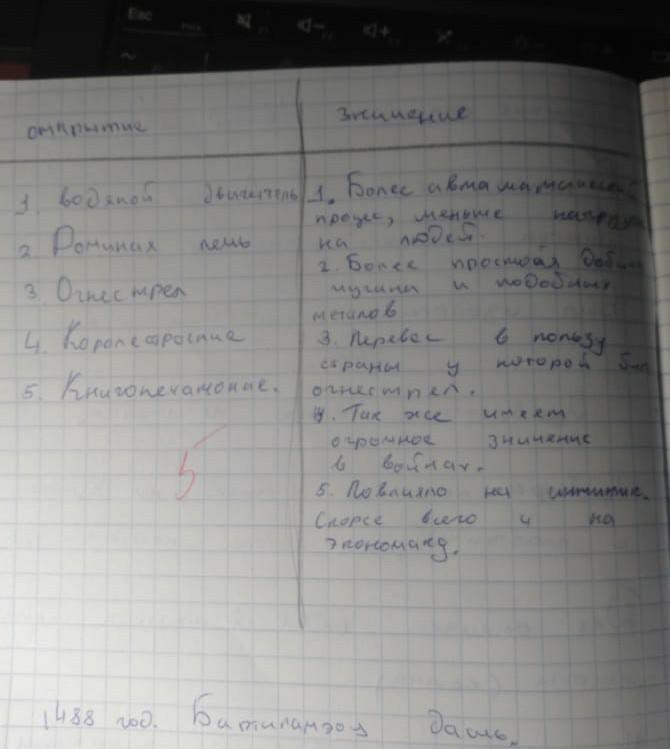 Esc
открытие
значение
1. водяной двигатель
2 Доминая печь
3. Огнестрел
4. Кораблестроение
5. Книгопечатание.
5
1. Более автоматический
процес, меньше нагрузки
на людей.
2. Более простая добыча
чугуна и подобных
металов
3. Перевес в пользу
страны у которой был
огнестрел.
4. Так же имеет
огромное значение
в войнах.
5. Повлияло на
Скорее всего и на
экономику.
1488 год. Бартоломеу